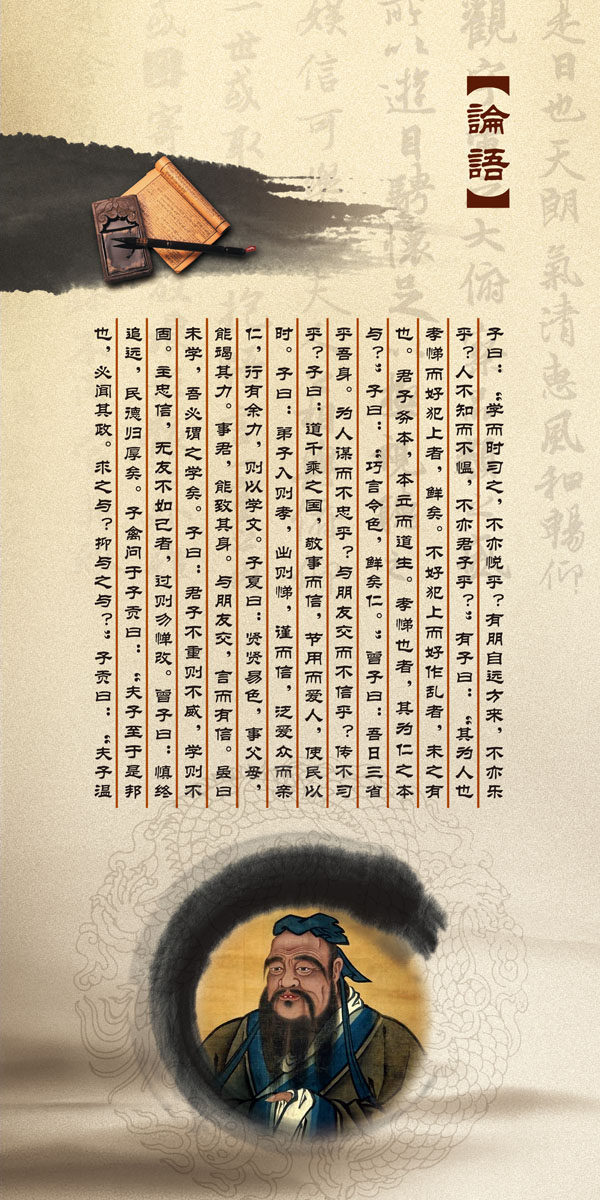 是日也天朗氣清惠風和暢仰
【論語】
所以遊目騁懷足
娛信可
子曰：“学而时习之，不亦悦乎？有朋自远方来，不亦乐
乎？人不知而不愠，不亦君子乎？”有子曰：“其为人也
孝悌而好犯上者，鲜矣。不好犯上而好作乱者，未之有
也。君子务本，本立而道生。孝悌也者，其为仁之本
与？”子曰：“巧言令色，鲜矣仁。”曾子曰：吾日三省
乎吾身。为人谋而不忠乎？与朋友交而不信乎？传不习
乎？子曰：道千乘之国，敬事而信，节用而爱人，使民以
时。子曰：弟子入则孝，出则悌，谨而信，泛爱众而亲
仁，行有余力，则以学文。子夏曰：贤贤易色，事父母，
能竭其力。事君，能致其身。与朋友交，言而有信。虽曰
未学，吾必谓之学矣。子曰：君子不重则不威，学则不
固。主忠信，无友不如己者，过则勿惮改。曾子曰：慎终
追远，民德归厚矣。子禽问于子贡曰：“夫子至于是邦
也，必闻其政。求之与？抑与之与？”子贡曰：“夫子温